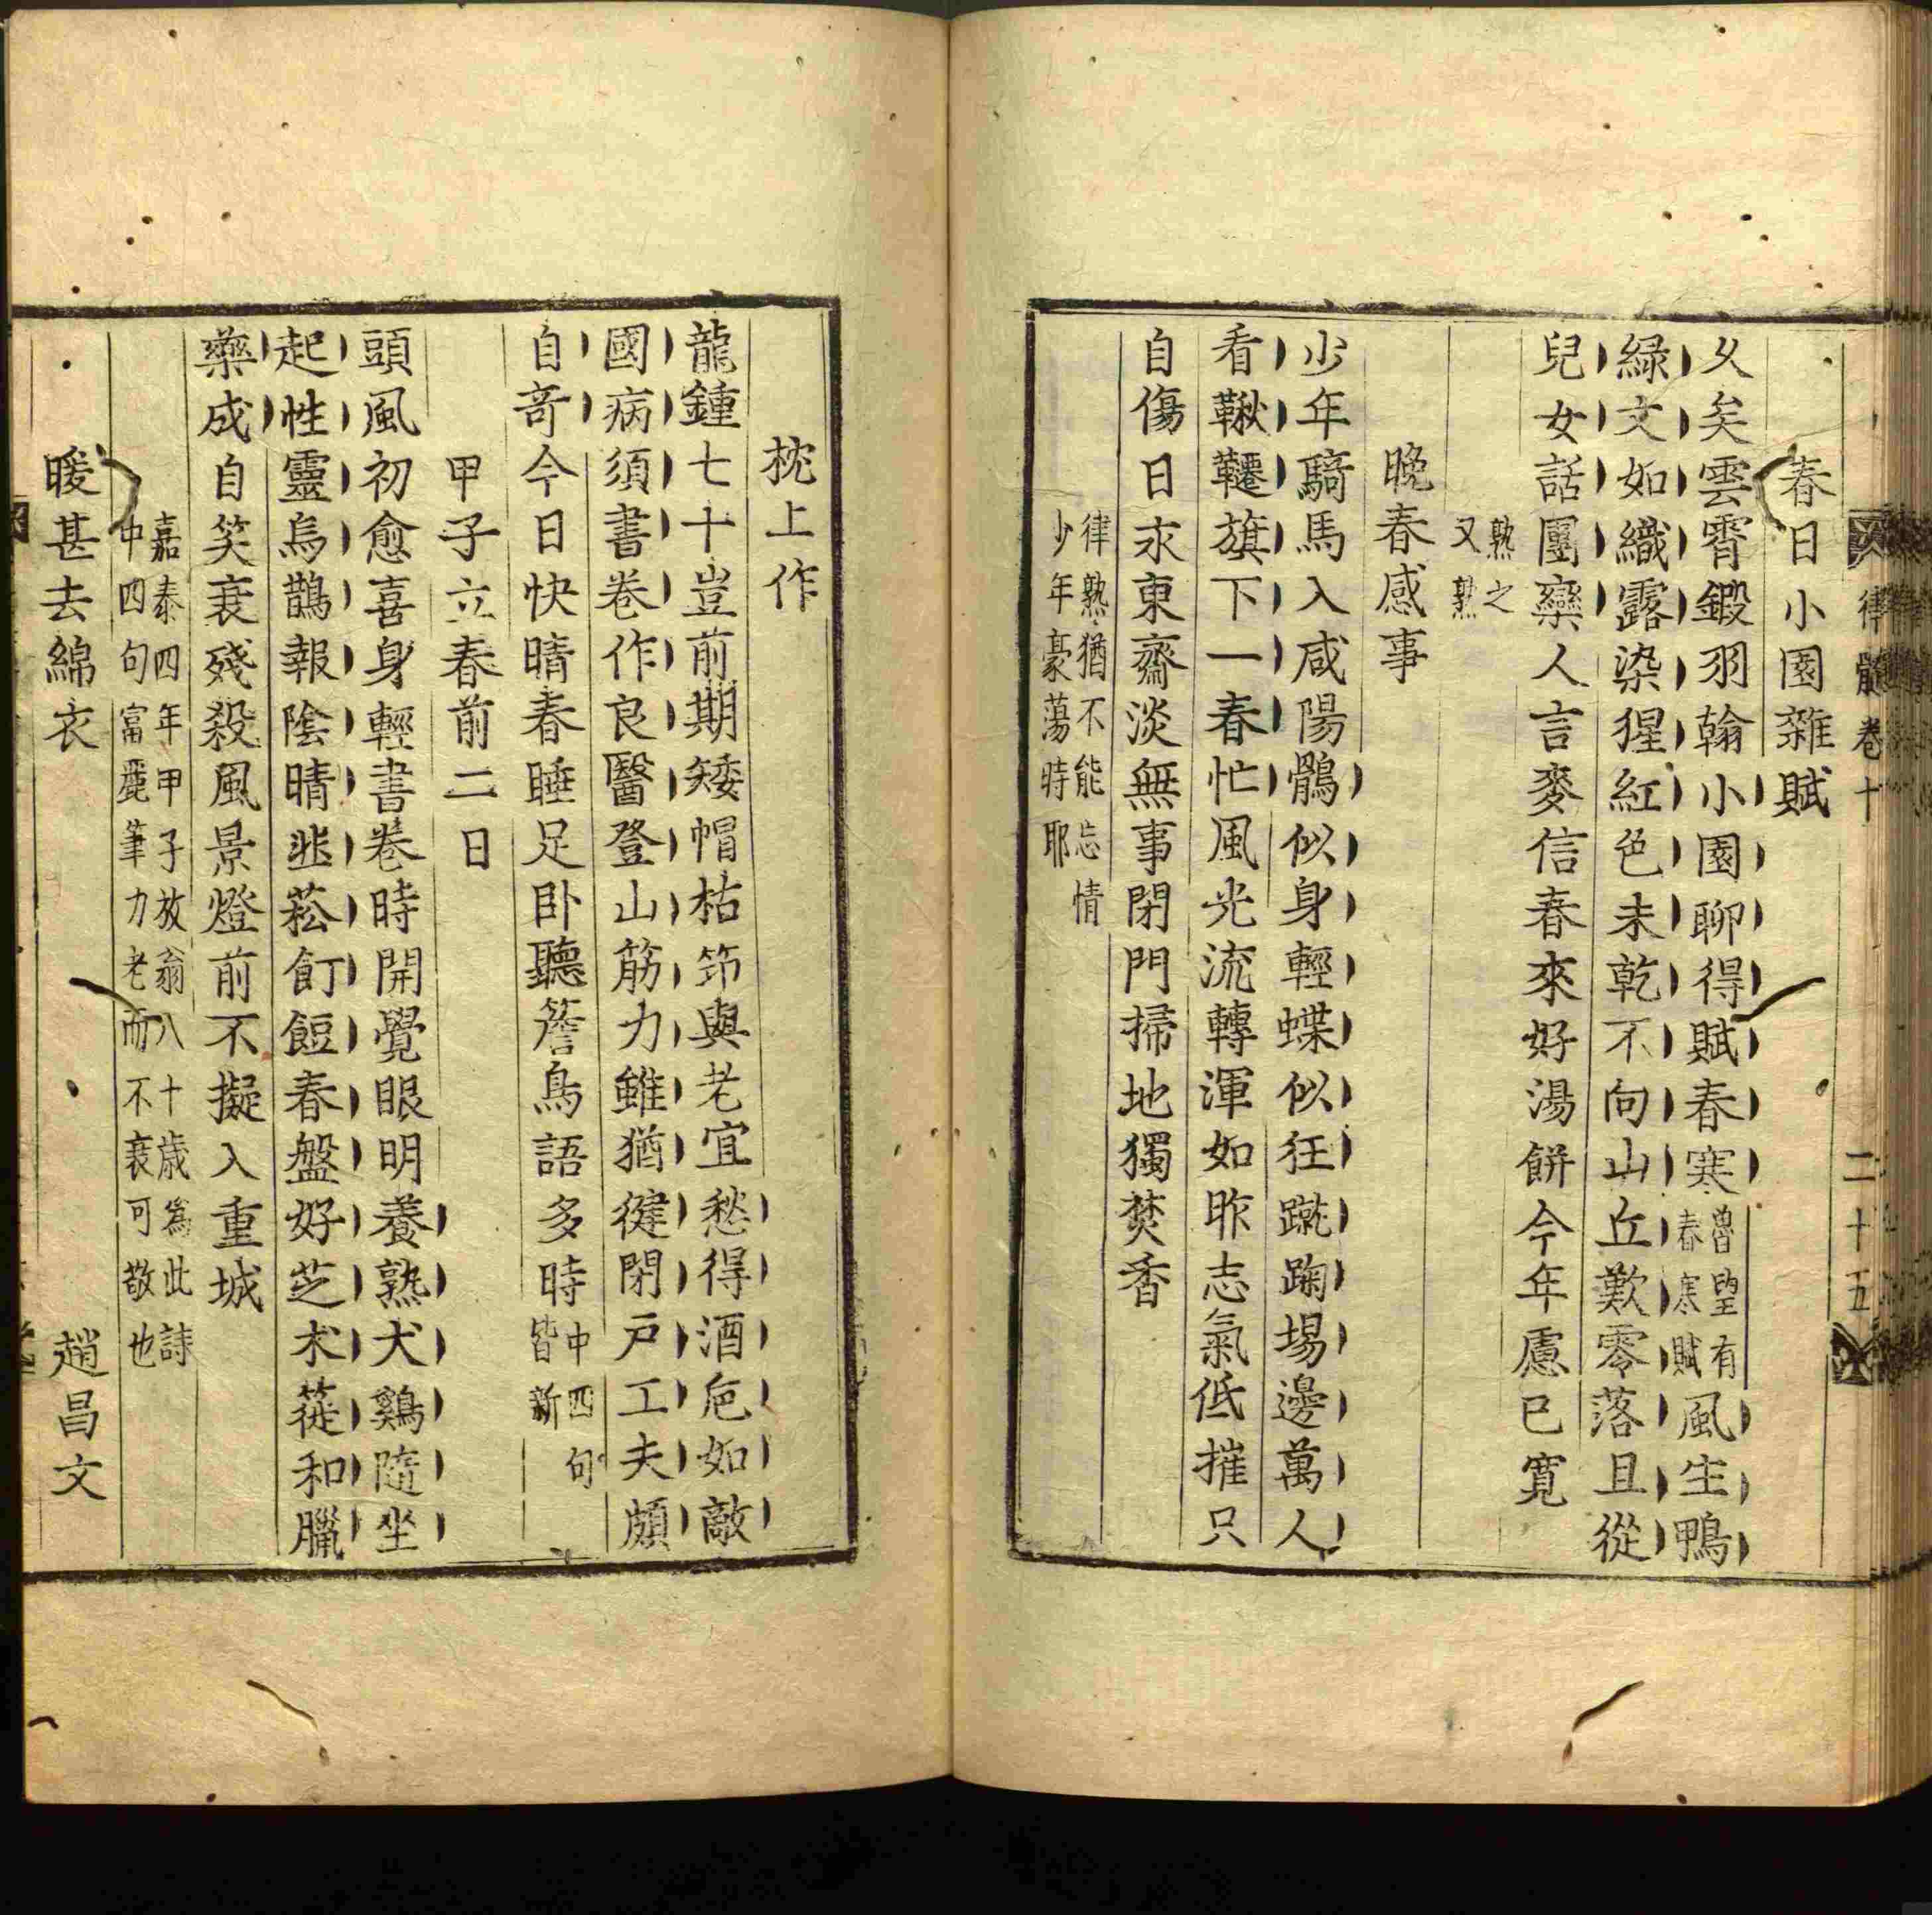 律髓卷十
二十五
春日小園雜賦
久矣雲霄鎩羽翰小園聊得賦春寒魯望有
春寒賦風生鴨
綠文如織露染猩紅色未乾不向山丘歎零落且從
兒女話團欒人言麥信春來好湯餅今年慮已寬
熟之
又熟
晚春感事
少年騎馬入咸陽鶻似身輕蝶似狂蹴踘場邊萬人
看鞦韆旗下一春忙風光流轉渾如昨志氣低摧只
自傷日永東齋淡無事閉門掃地獨焚香
律熟猶不能忘情
少年豪蕩時耶
枕上作
龍鍾七十豈前期矮帽枯笻與老宜愁得酒巵如敵
國病須書卷作良醫登山筋力雖猶健閉戶工夫頗
自奇今日快晴春睡足卧聽簷鳥語多時中四句
皆新
甲子立春前二日
頭風初愈喜身輕書卷時開覺眼明養熟犬鷄隨坐
起性靈烏鵲報陰晴韭菘飣餖春盤好芝术蓰和臘
藥成自笑衰殘殺風景燈前不擬入重城
嘉泰四年甲子放翁八十歲為此詩
中四句富麗筆力老而不衰可敬也
暖甚去綿衣 趙昌文